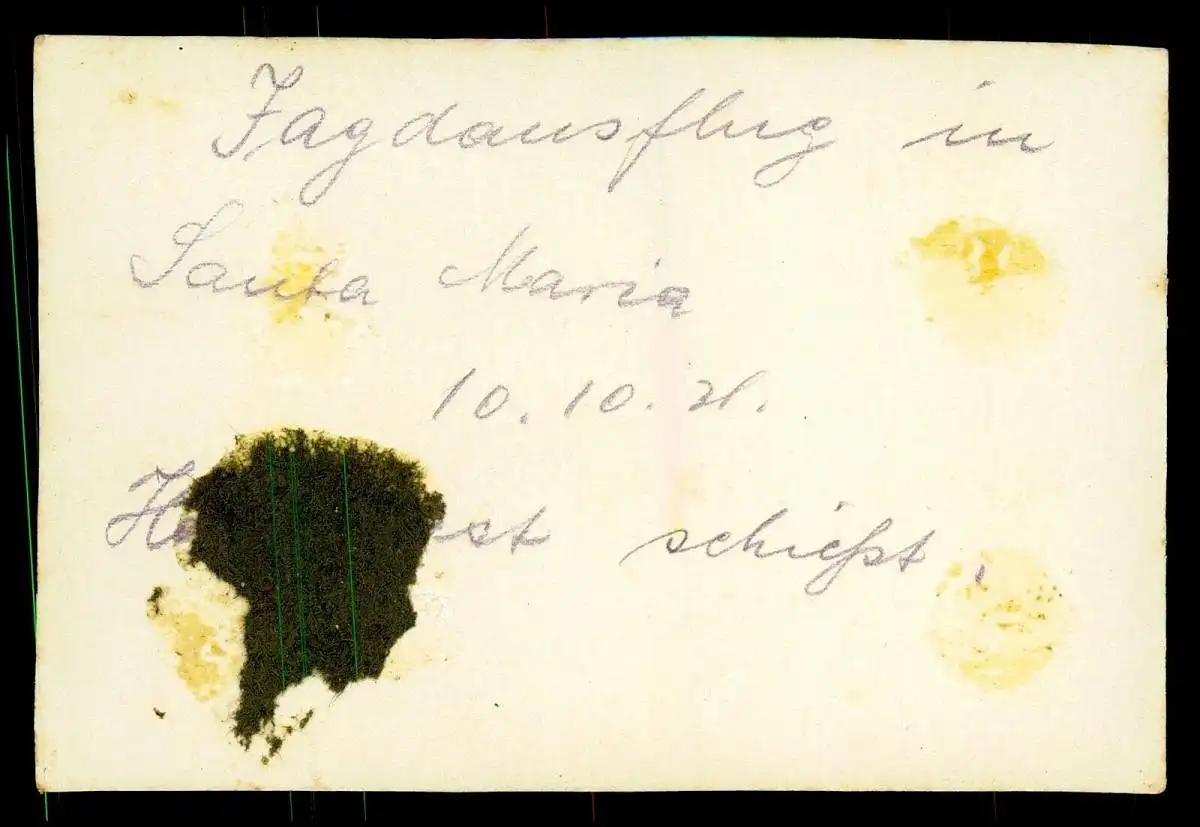 Jagdausflug in
Santa Maria
10. 10.
schießt.